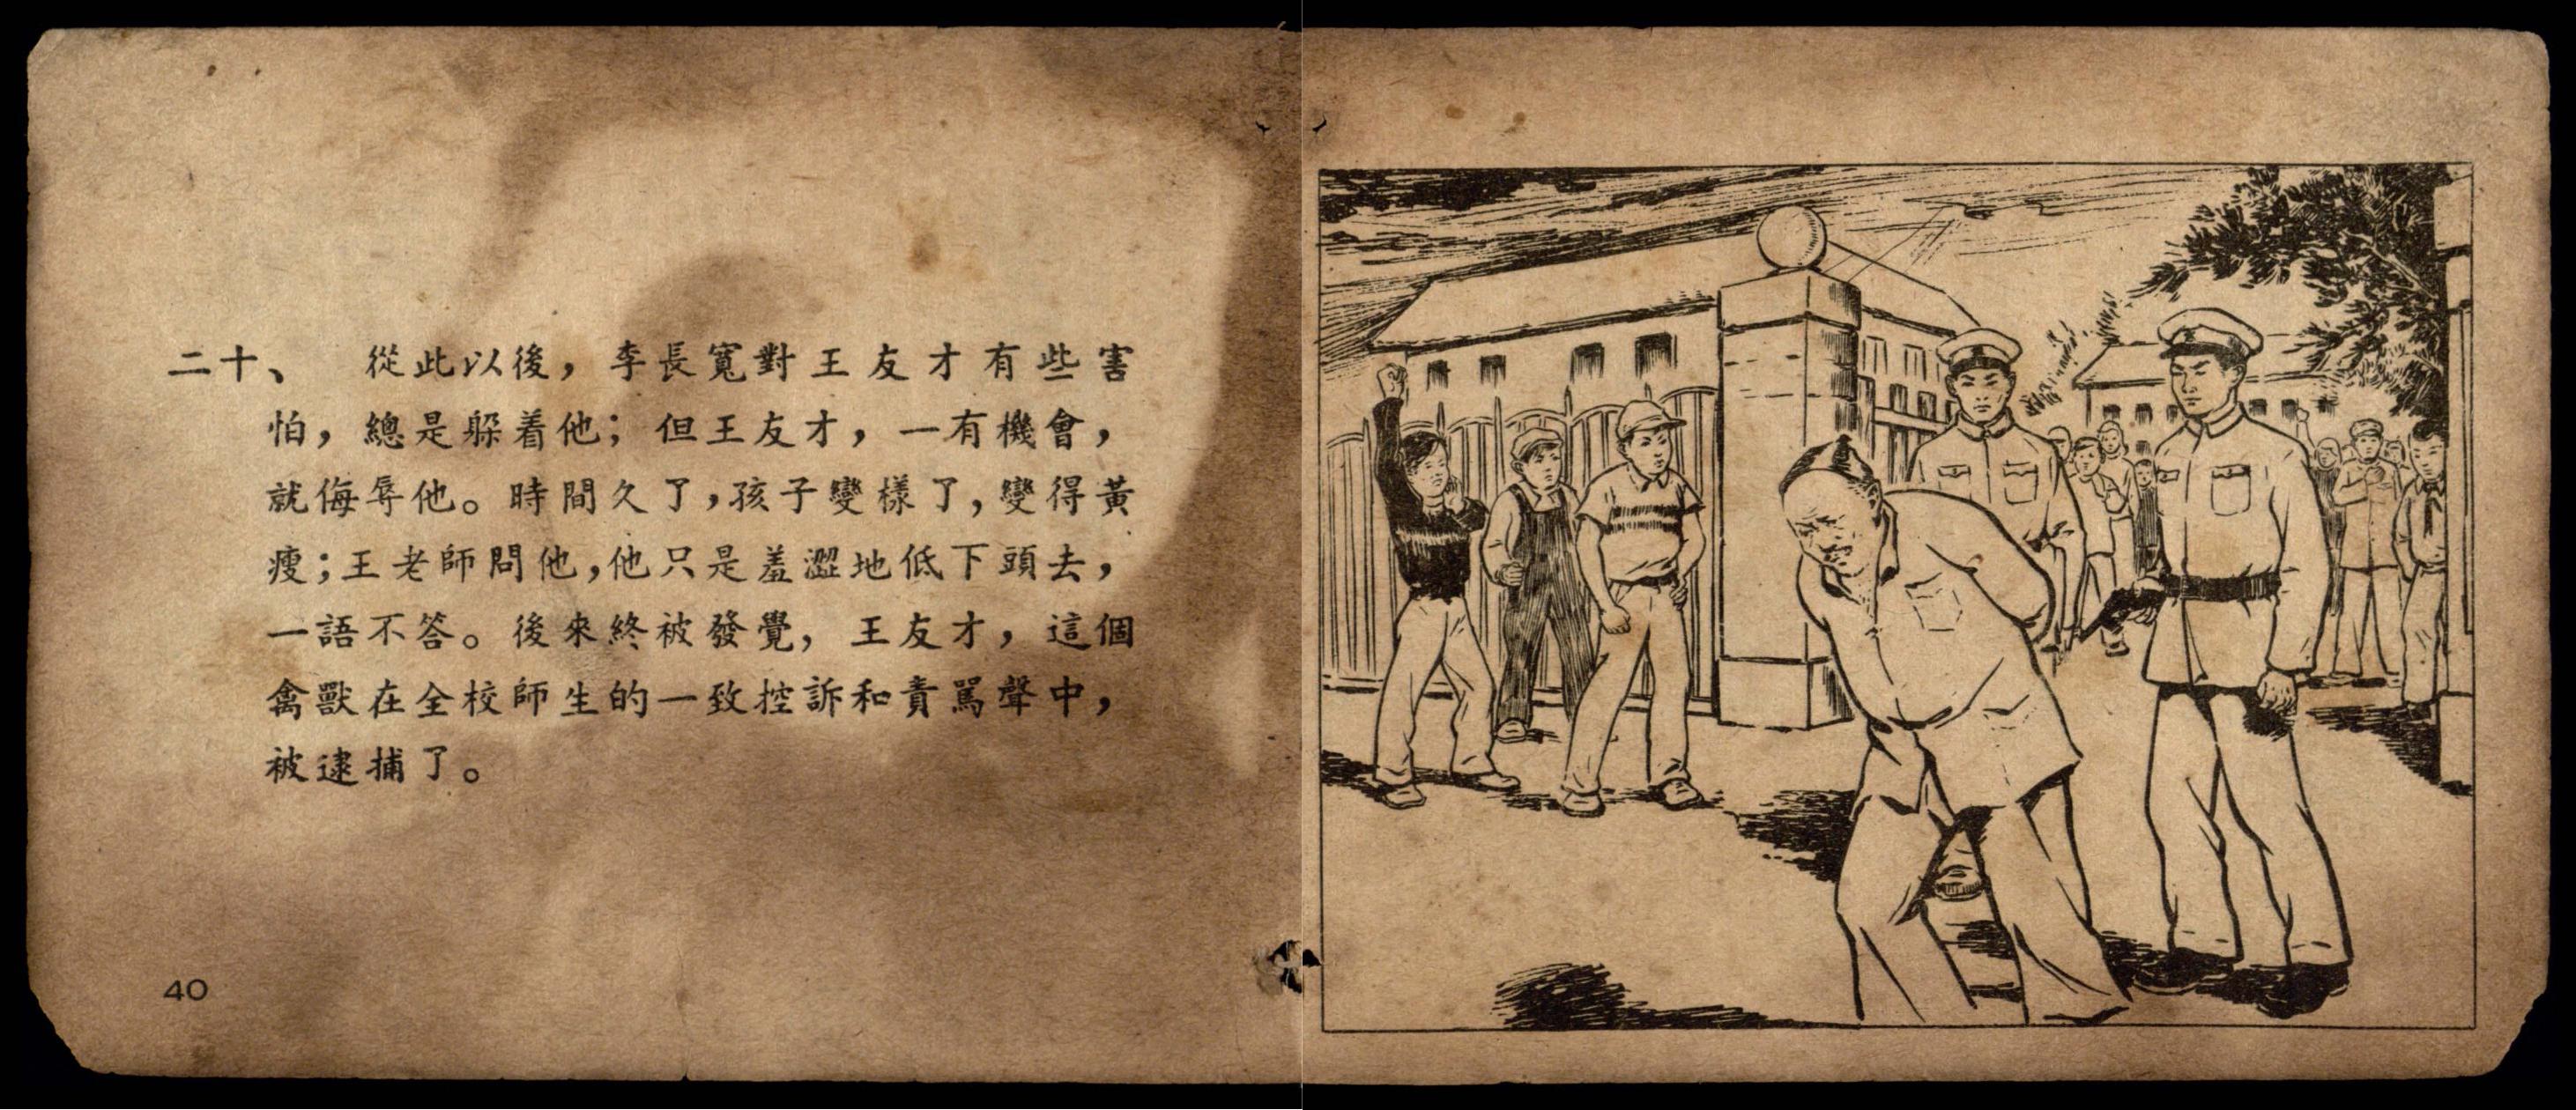 二十、 從此以後，李長寬對王友才有些害
怕，總是躲着他；但王友才，一有機會，
就侮辱他。時間久了，孩子變樣了，變得黃
瘦；王老師問他，他只是羞澀地低下頭去，
一語不答。後來終被發覺，王友才，這個
禽獸在全校師生的一致控訴和責罵聲中，
被逮捕了。
40